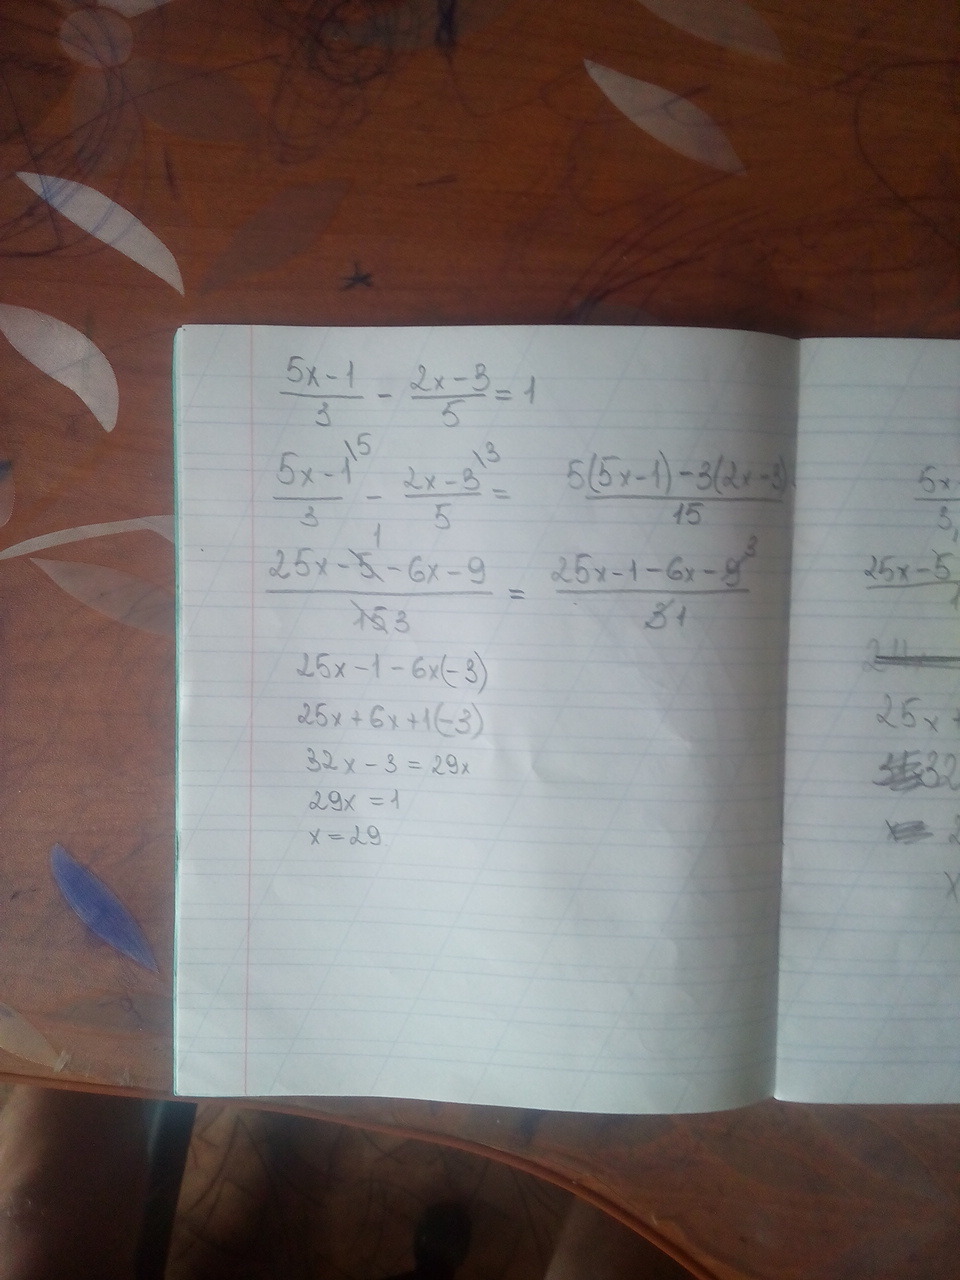 (5x-1)/3 - (2x-3)/5 = 1
(5x-1)\5/3 - (2x-3)\3/5 = (5(5x-1)-3(2x-3))/15
(25x-5 1-6x-9)/(15 3) = (25x-1-6x-9 3)/(3 1)
25x-1-6x(-3)
25x+6x+1(-3)
32x-3=29x
29x=1
x=29
5x
3
25x-5
1
25x
32
x